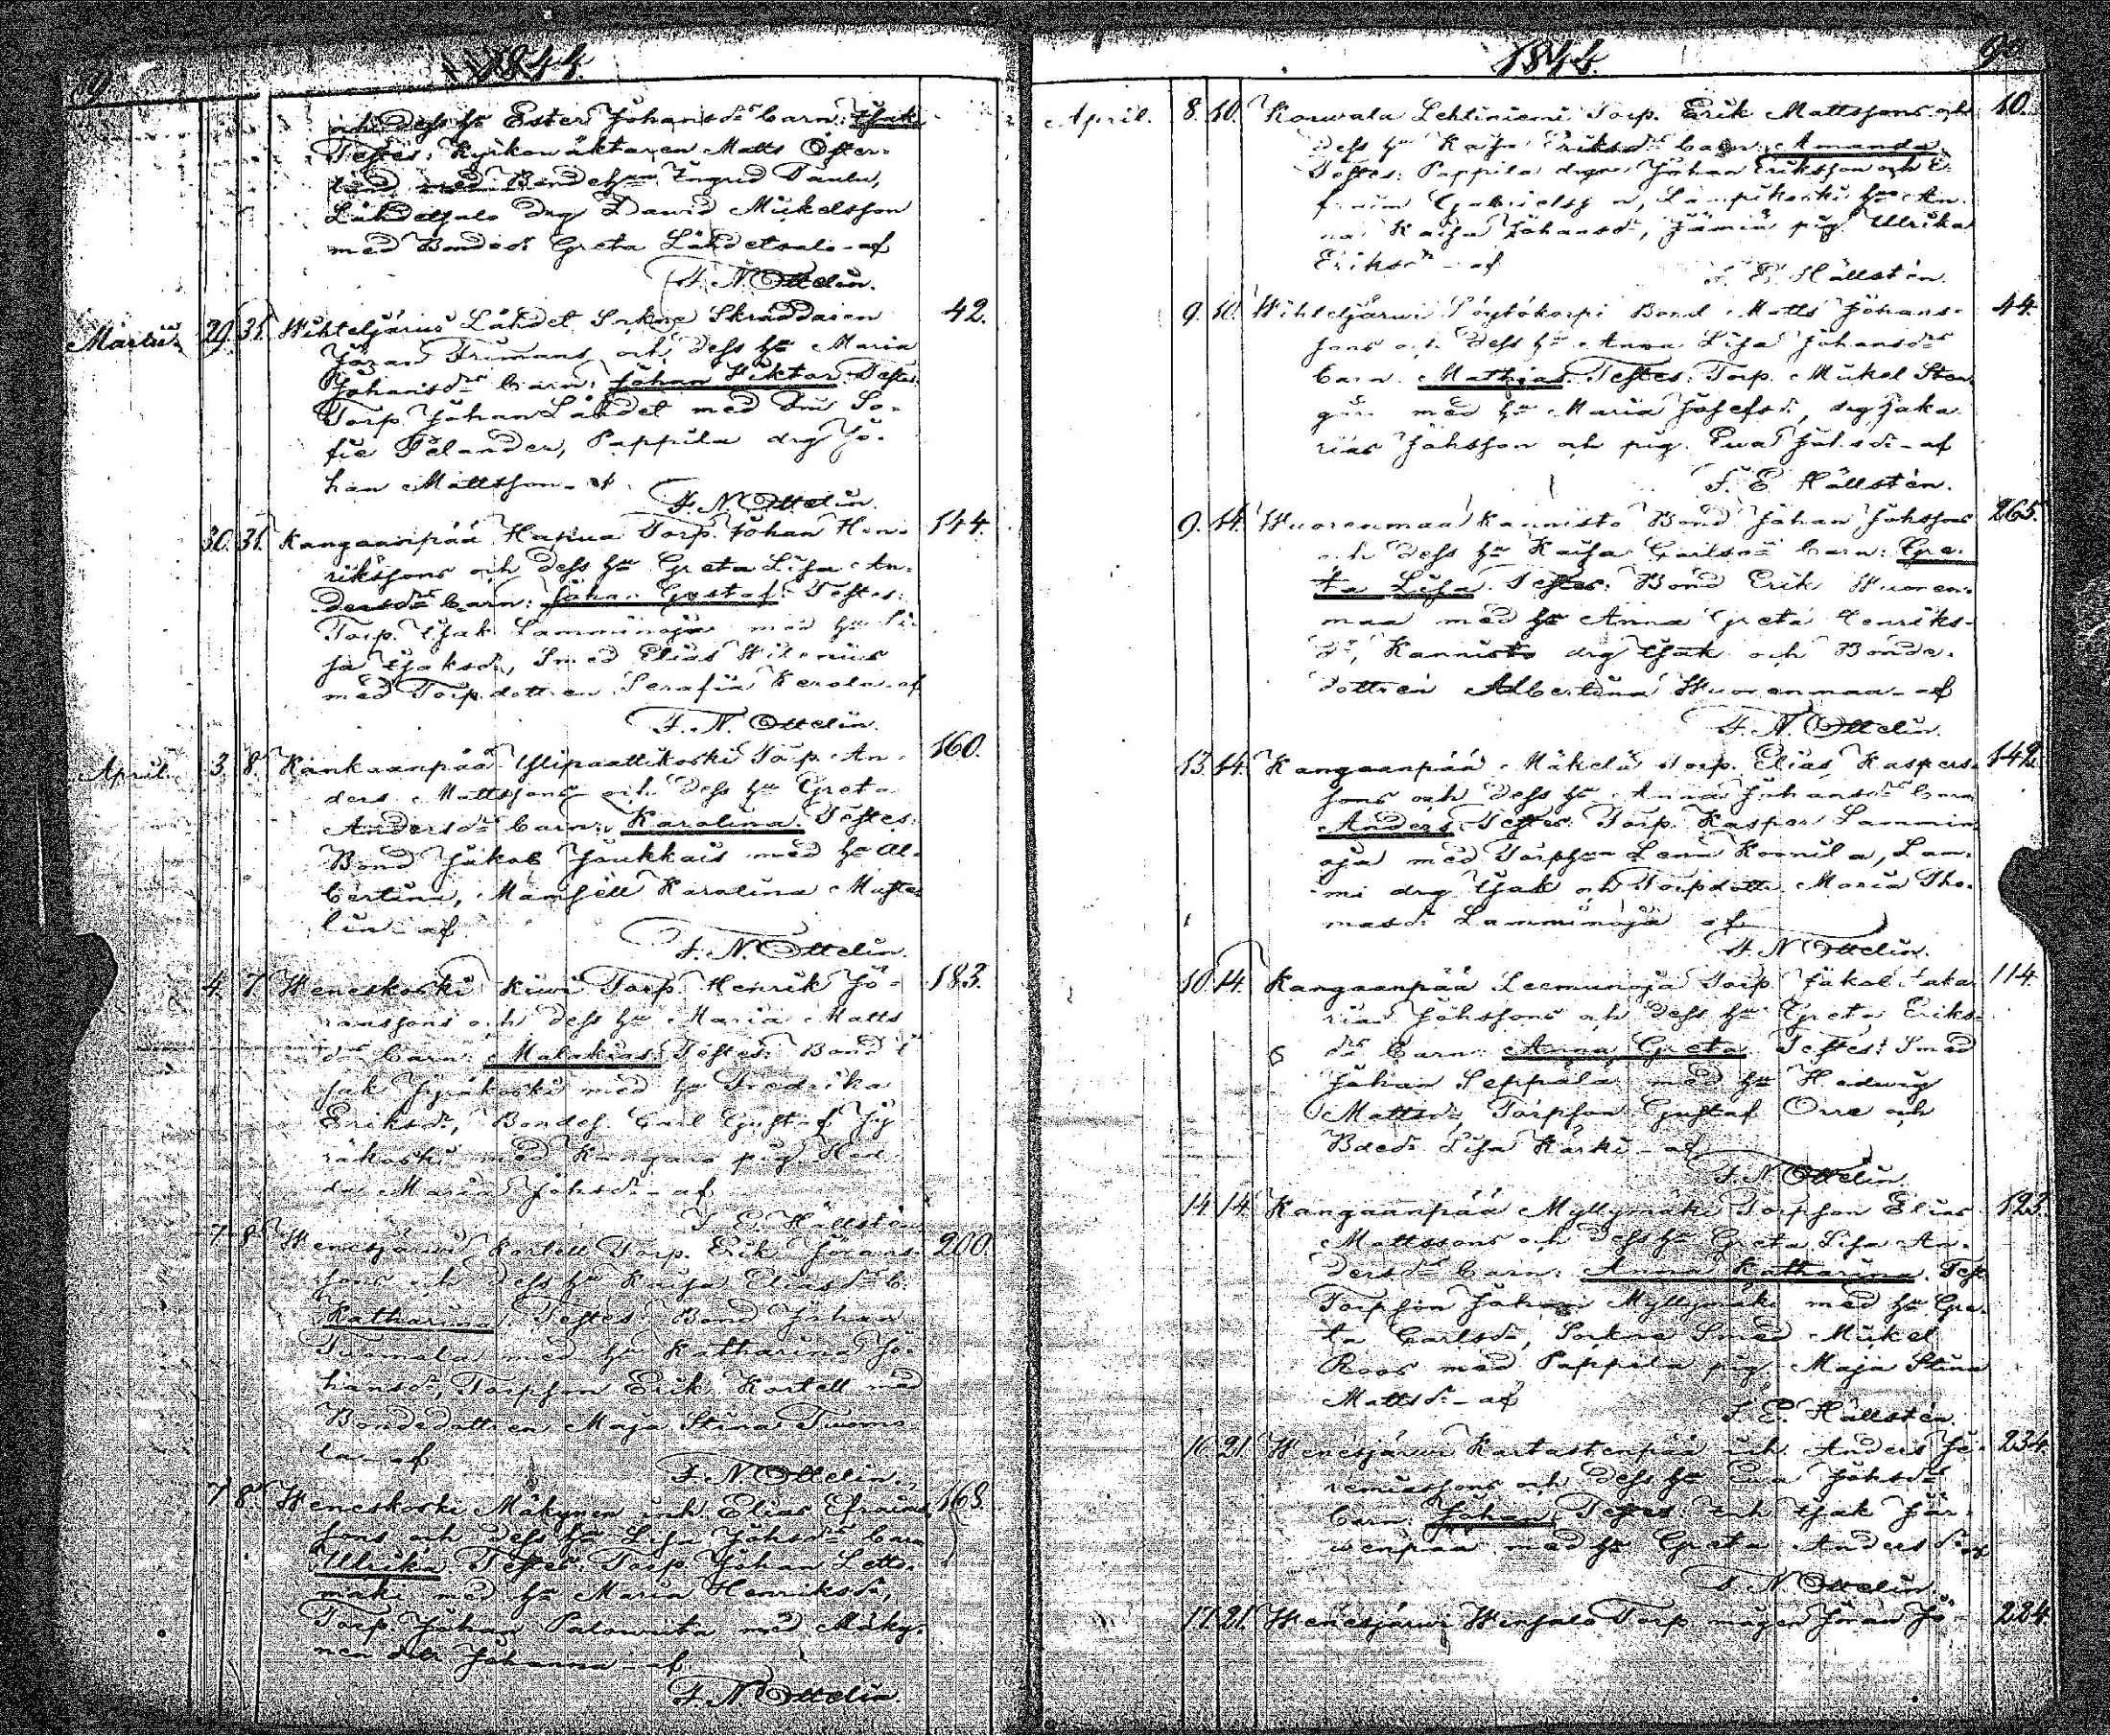 9
1844.
och dess hu Ester Johansdr barn: Isak
Testes: Kyrkowäktaren Matts Öster-
lund med Bondehun Ingrid Paulu,
Lähdesalo drg Dawid Mickelsson
med Bondedr Greta Lähdetsalo - af
F. N. Ottelin.
Martii. 29. 31. Wihteljärwi Lähdet Sokne Skräddaren 42.
Göran Frimans och dess hu Maria
Johansdrs barn: Johan Wiktor. Testes:
Torp. Johan Lähdet med
fie Pelander, Pappila drg Jo-
han Mattsson - af
F. N. Ottelin.
30. 31. Kangaanpää Hapua Torp. Johan Hen- 144.
rikssons och dess hu Greta Lisa An-
dersdrs barn: Johan Gustaf. Testes:
Torp. Isak Lamminoja med hu Li-
sa Isaksdr, Smed Elias Wilenius
med Torpdottren Serafia Kerola - af
F. N. Ottelin.
April. 3. 8. Kankaanpää Ylipaattikoski Torp. An- 160.
ders Mattssons och dess hu Greta
Andersdrs barn: Karolina. Testes:
Bond Jakob Joukkais med hu Al-
bertina, Mamsell Karolina Muste-
lin - af
F. N. Ottelin.
4. 7. Weneskoski Kiwi Torp. Henrik Jö- 183.
ranssons och dess hu Maria Matts
drs barn: Malakias. Testes: Bond I
sak Jyräkoski med hu Fredrika
Eriksdr, Bondes. Carl Gustaf Jy-
räkoski med Kangaro pig. Hed-
da Maria Johsdr - af
F. E. Hällstén
7. 8. Wenesjärwi Kortell Torp. Erik Jörans- 200.
sons och dess hu Kaisa Eliasdrs b:
Katharina. Testes: Bond Johan
Tuomala med hu Katharina Jo-
hansdr, Torpson Erik Kortell med
Bondedottren Maja Stina Tuoma-
la - af
F. N. Ottelin.
7. 8. Weneskoski Mäkynen inh. Elias Efraims- 168.
sons och dess hu Lisa Johsdrs barn
Ulrika. Testes: Torp. Johan Letto-
mäki med hu Maria Henriksdr,
Torp. Johan med Mäky-
nen Johanna - af
F. N. Ottelin.
1844.
April. 8. 10. Korwala Lehtiniemi Torp. Erik Mattssons och 10.
dess hu Kaisa Eriksdrs barn: Amanda
Testes: Pappila drgr Johan Eriksson och E-
fraim Gabrielsson, Lampikoski hu An-
na Kaisa Johansdr, Jämiä pig Ulrika
Eriksdr - af
F. E. Hällstén.
9. 10. Wihteljärwi Pöytökorpi Bond Matts Johans- 44.
sons och dess hu Anna Lisa Johansdrs
barn: Mathias. Testes: Torp. Mickel Sten-
med hu Maria Josefsdr, drg Saka-
rias Johsson och pig. Ewa Johsdr - af
F. E. Hällstén.
9. 14. Wuorenmaa Kannisto Bond Johan Johssons 265.
och dess hu Kaisa Carlsdrs barn: Gre-
ta Lisa. Testes: Bond Erik Wuoren-
maa med hu Anna Greta Henriks-
dr, Kannisto drg Isak och Bonde-
dottren Albertina Wuorenmaa - af
F. N. Ottelin.
13. 14. Kangaanpää Mäkelä Torp. Elias Kaspers- 149.
sons och dess hu Anna Johansdrs barn
Anders. Testes: Torp. Kaspar Lammin-
oja med Torphun Lena Koonila, Lam-
mi drg Isak och Torpdottr. Maria Tho-
masdr Lamminoja - af
F. N. Ottelin.
10. 14. Kangaanpää Leemunoja Torp. Jakob Saka- 114.
rias Johssons och dess hu Greta Eriks-
drs barn: Anna Greta. Testes: Smed
Johan Seppälä med hu Hedwig
Mattsdr, Torpson Gustaf Orre och
Bdedr Lisa Karki - af
F. N. Ottelin.
14. 14. Kangaanpää Myllymäki Torpson Elias 123.
Mattssons och dess hu Greta Lisa An-
dersdrs barn: Anna Katharina. Test.
Torpson Johan Myllymäki med hu Gre-
ta Carlsdr, Sokne Smed Mickel
Roos med Pappila pig. Maja Stina
Mattsdr - af
F. E. Hällstén.
16. 21. Wenesjärwi Kartastenpää inh. Anders Je- 234.
remiassons och dess hu Ewa Johsdrs
barn: Johan. Testes: Inh Isak Jär-
wenpää med hu Greta Andersdr - af
F. N. Ottelin.
17. 21. Wenesjärwi Wensalo Torp. mågen Jöran Jö- 224.